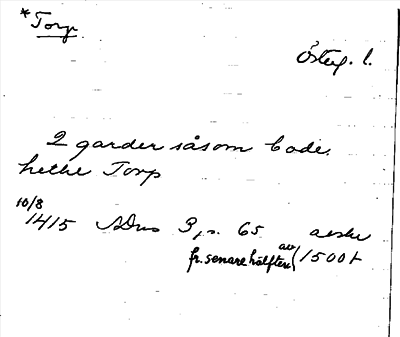 *Torp
Österg. l.
2 garder såsom bode
hethe Torp
10/8
1415 SDns 3, s. 65 avskr
fr. senare hälften av 1500t